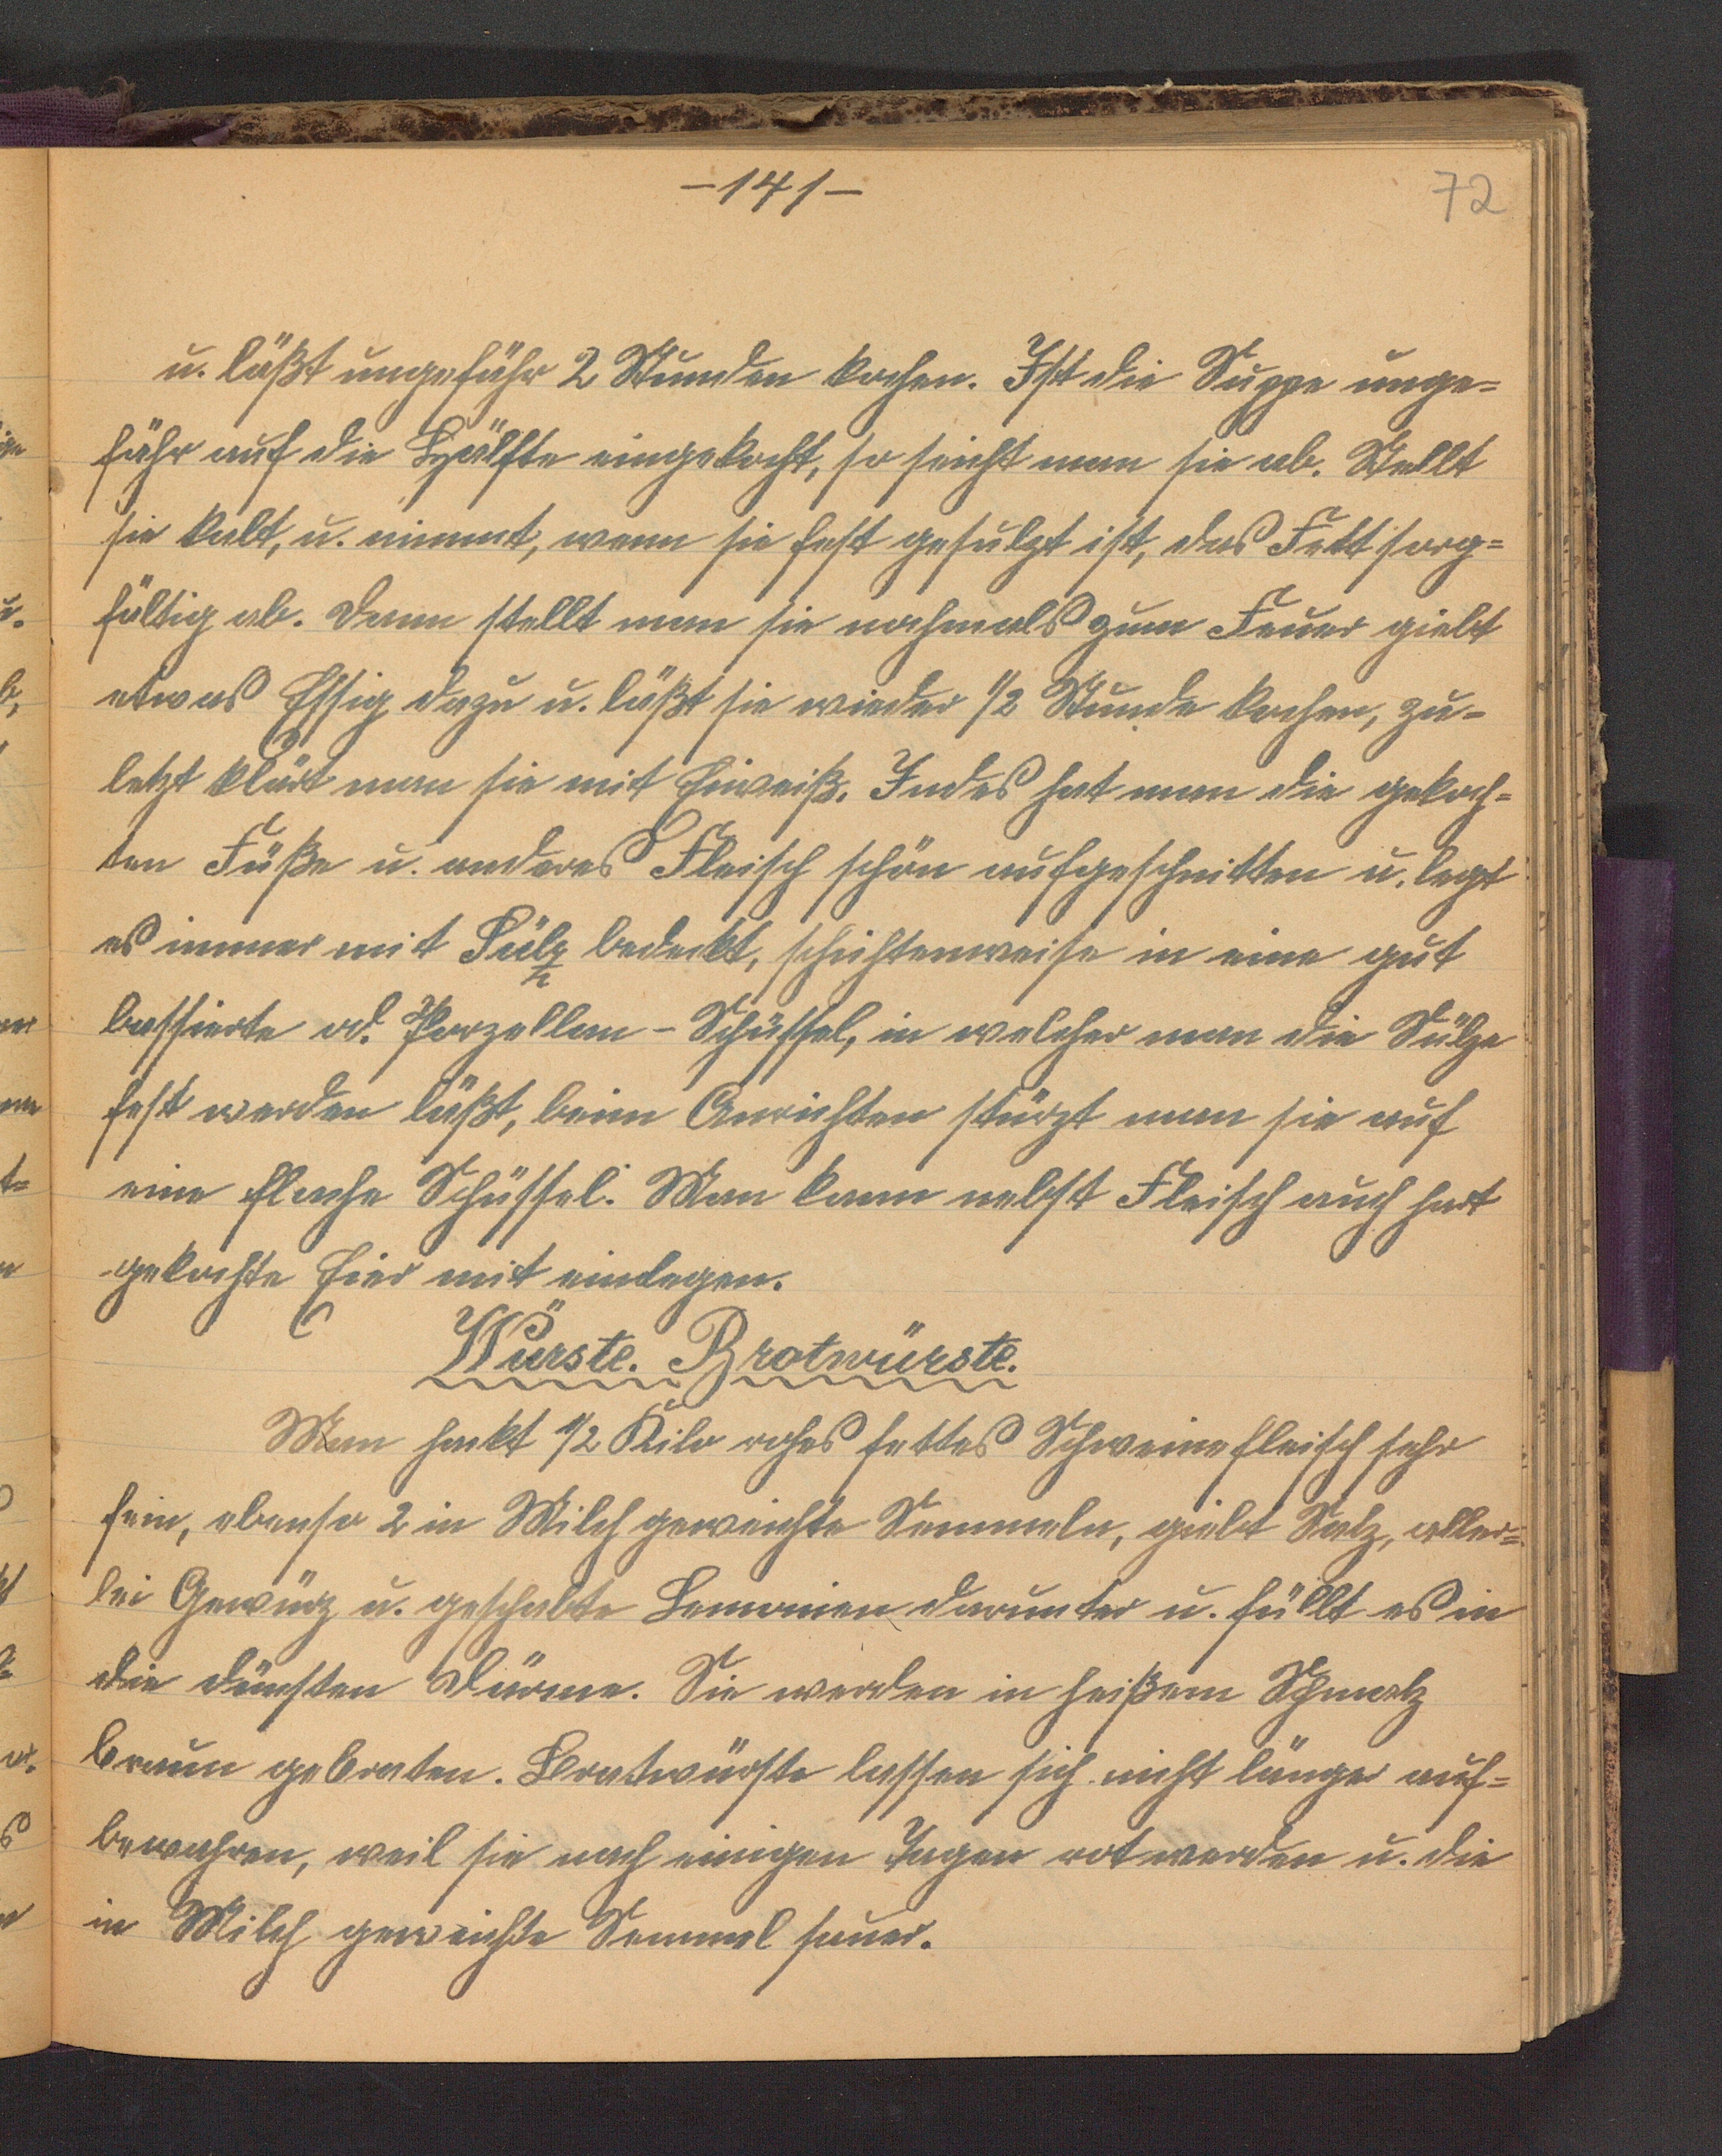 -141-
72
u. läßt ungefähr 2 Stunden kochen. Ist die Suppe unge=
fähr auf die Hälfte eingekocht, so seicht man sie ab. Stellt
sie kalt, u. nimmt, wenn sie fest gesulzt ist, das Fett sorg=
fältig ab. Dann stellt man sie nochmals zum Feuer giebt
etwas Essig dazu u. läßt sie wieder 1/2 Stunde kochen, zu=
letzt klärt man sie mit Eiweiß. Indes hat man die gekoch=
ten Füße u. anderes Fleisch schön aufgeschnitten u. legt
es immer mit Sülz bedeckt, schichtenweise in eine gut
bassierte od. Porzellan-Schüssel, in welcher man die Sülze
fest werden läßt, beim Anrichten stürzt man sie auf
eine flache Schüssel. Man kann nebst Fleisch auch hart
gekochte Eier mit einlegen.
Würste. Brotwürste.
Man hackt 1/2 Kilo rohes fettes Schweinefleisch sehr
fein, ebenso 2 in Milch geweichte Semmeln, giebt Salz, aller=
lei Gewürz u. geschabte Lemonien darunter u. füllt es in
die dünsten Därme. Sie werden in heißem Schmalz
braun gebraten. Bratwürste lassen sich nicht länger auf=
bewahren, weil sie nach einigen Tagen rot werden u. die
in Milch geweichte Semmel sauer.